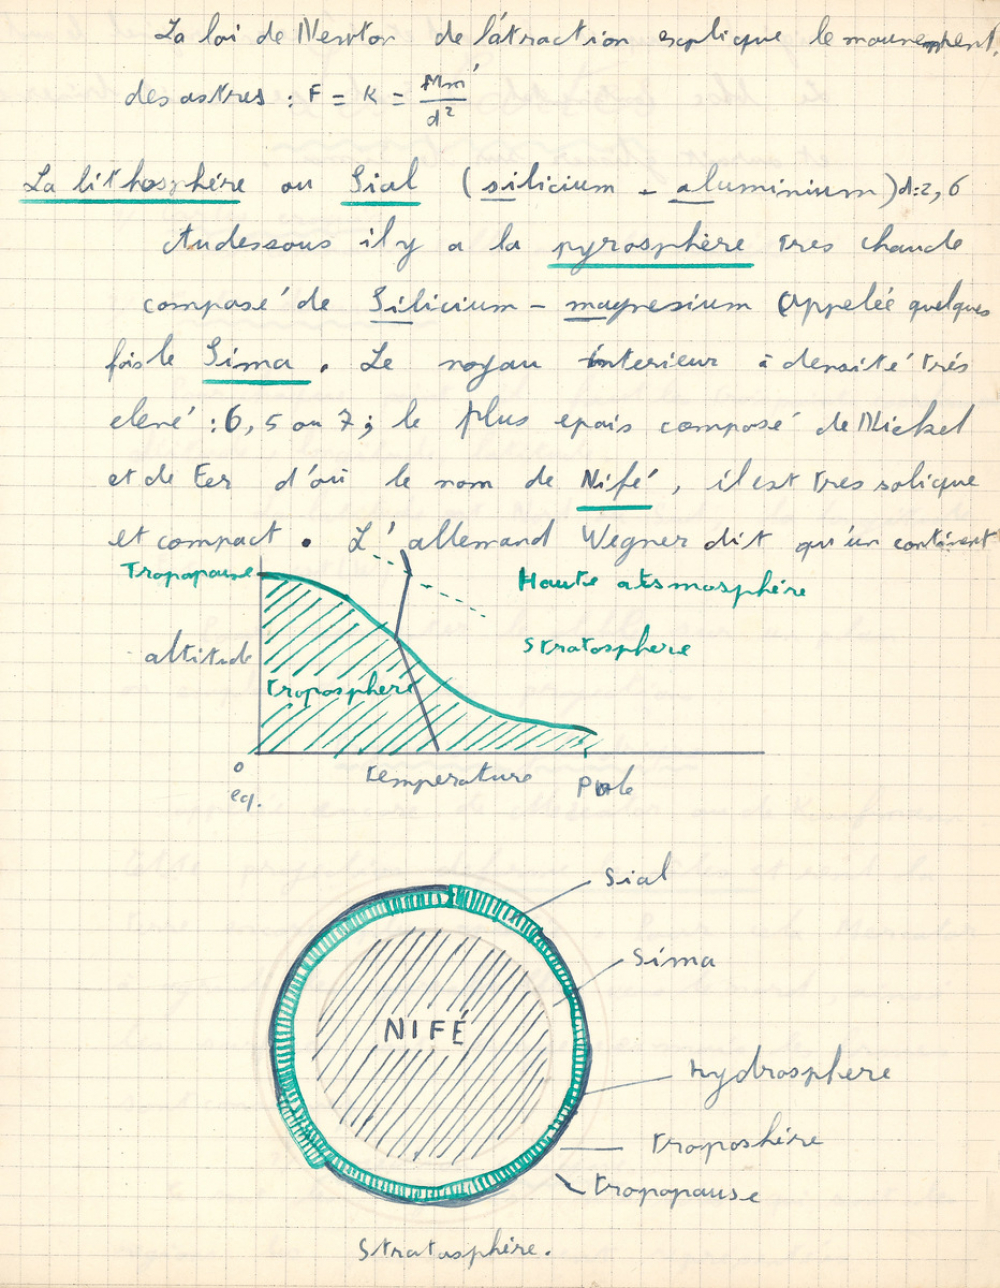 La loi de Newton de l'átraction explique le mouvement
des astres : F = K = Mm' / d²
La lithosphère ou Sial (silicium - aluminium) d:2,6
Au dessous il y a la pyrosphère tres chaude
composé de Silicium - magnesium (Appelée quelques
fois le Sima. Le noyau interieur à densité trés
elevé : 6,5 ou 7; le plus epais composé de Nickel
et de Fer d'où le nom de Nifé, il est tres solique
et compact. L'allemand Wegner dit qu'un continent
Tropopause
Haute atsmosphère
altitude
stratosphere
troposphere
0
éq.
temperature
Pole
Sial
Sima
NIFÉ
hydrosphere
troposhère
tropopause
Stratosphère.